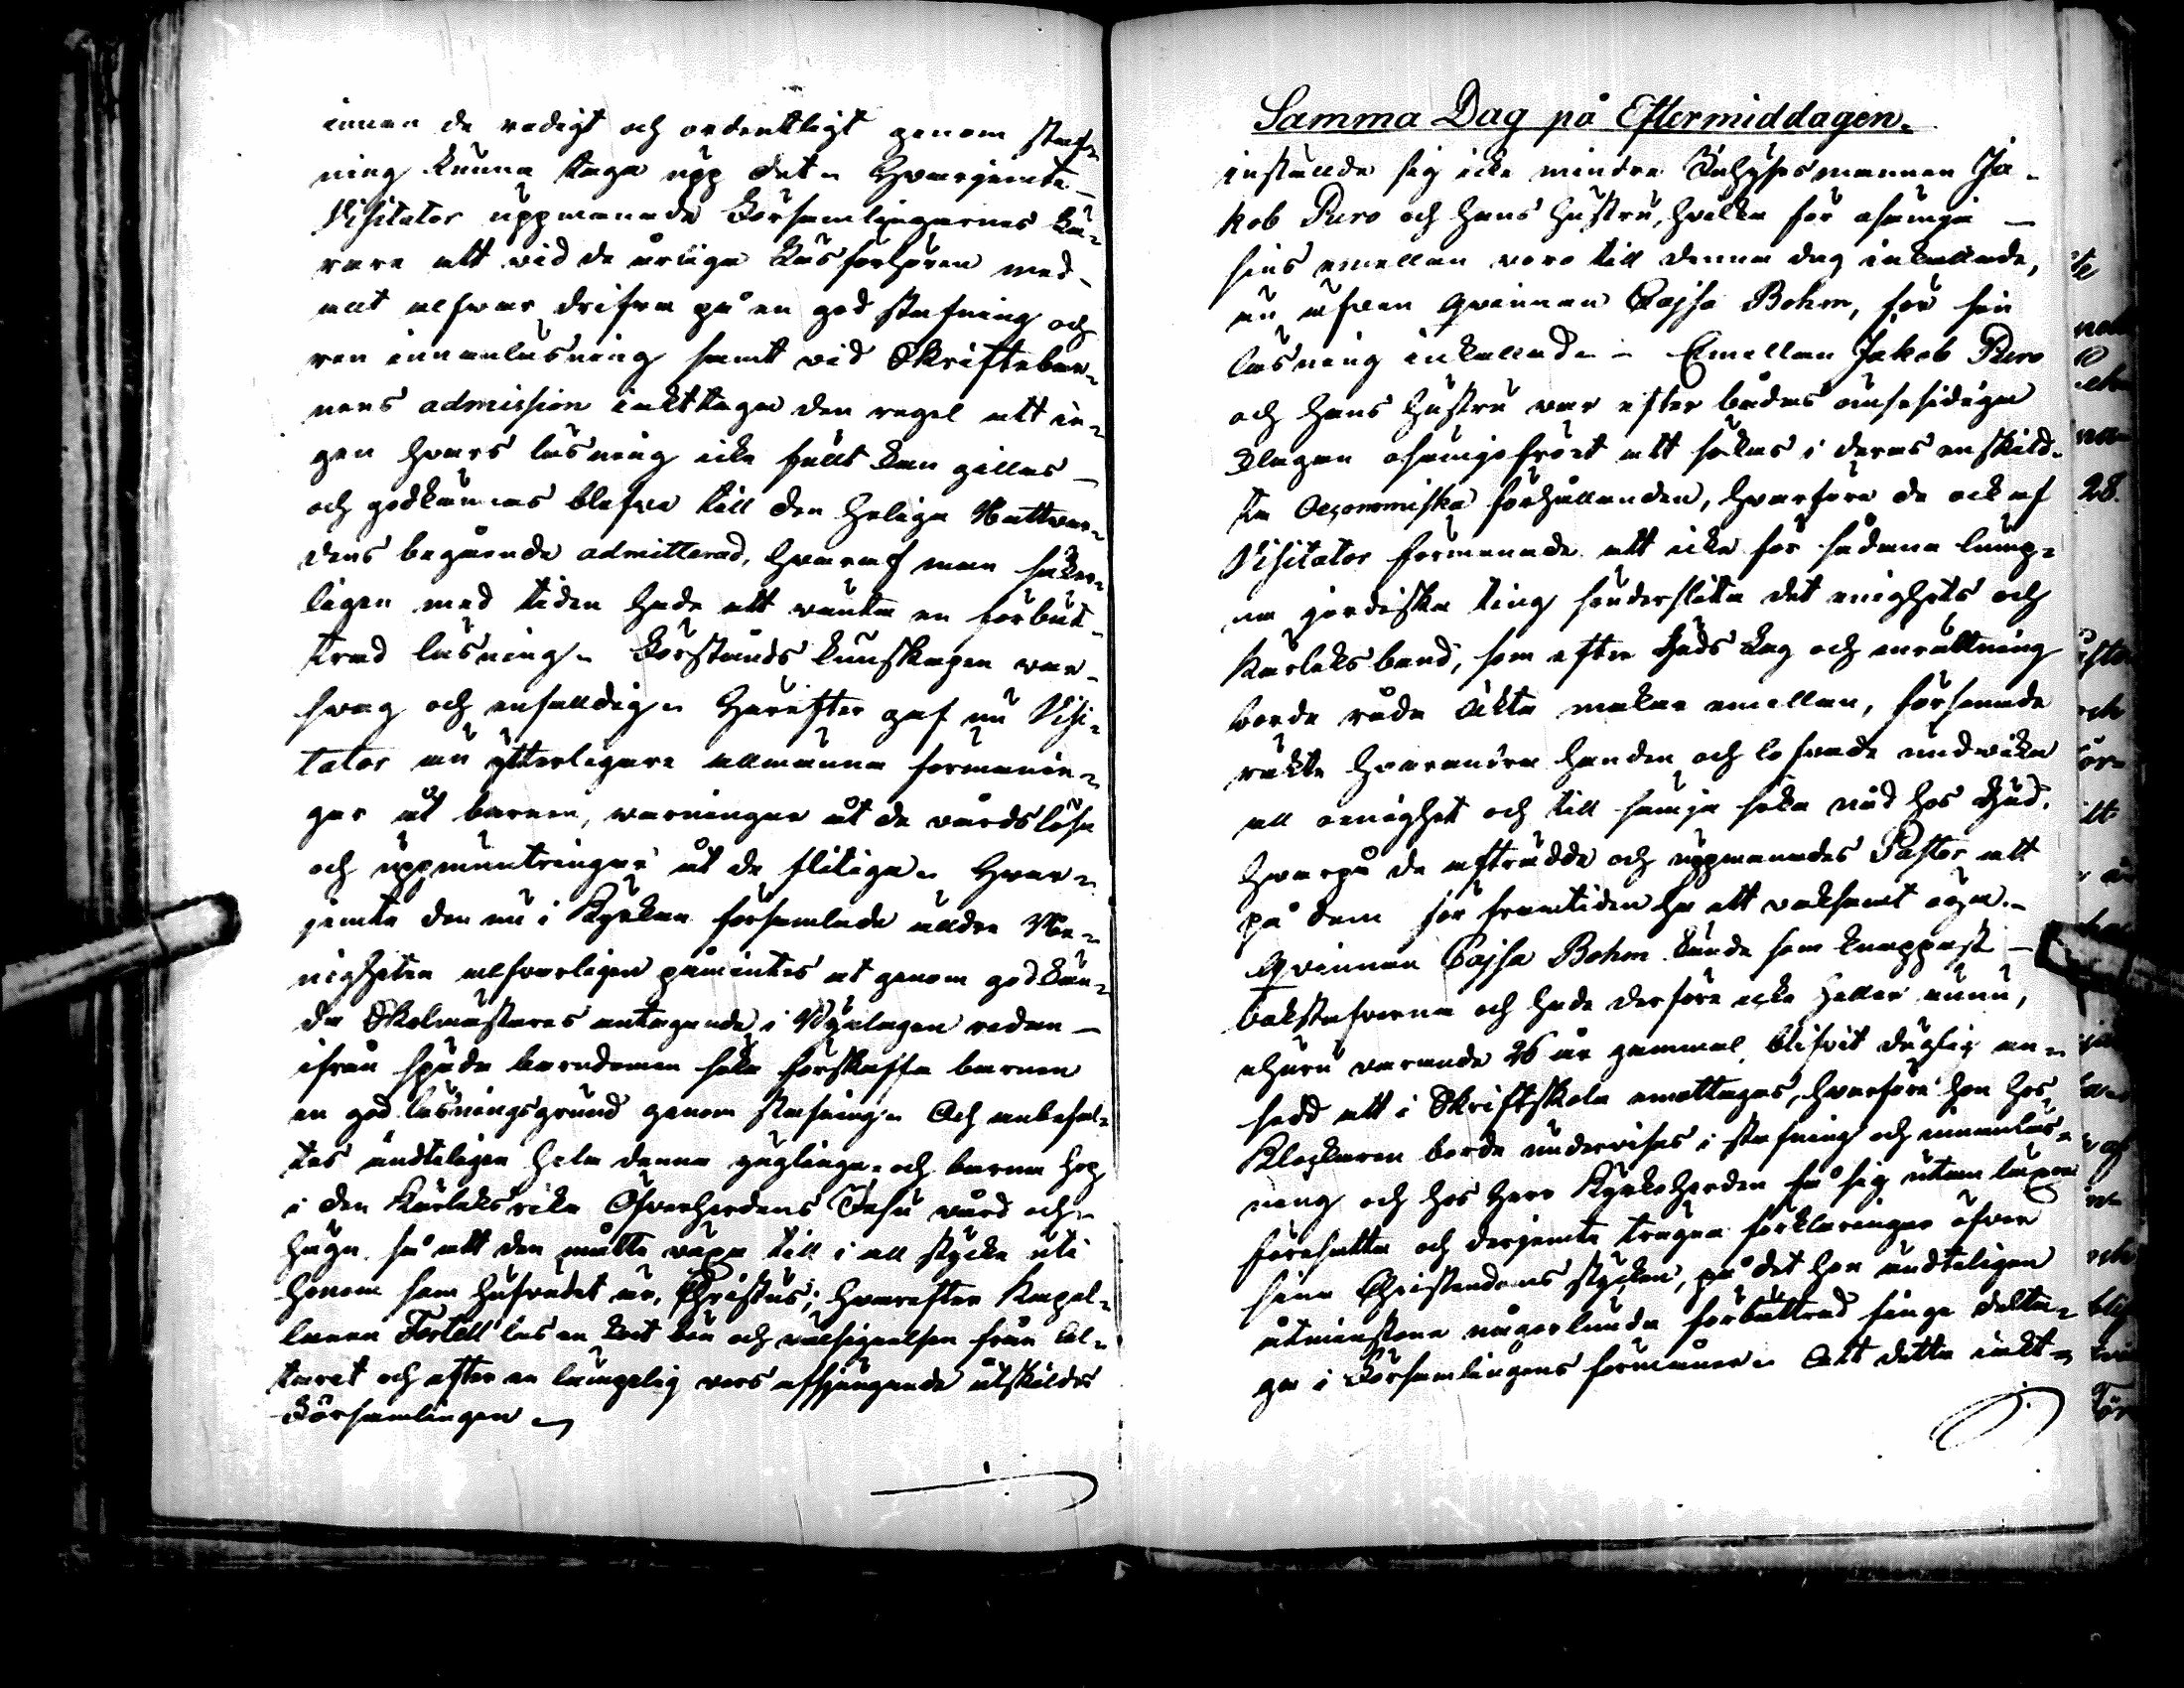 innan de redigt och ordentligt genom staf-
ning kunna taga upp det. Hvarjemte
Visitator uppmanade Församlingarnes Lä-
rare att vid de årliga Läsförhören med
allt alfvar drifva på en god stafning och
ren innanläsning samt vid Skriftebar-
nens admission iakttaga den regel att in-
gen hvars läsning icke fullt kan gillas
och godkännas blefve till den Heliga Nattvar-
dens begående admitterad, hvaraf man säker-
ligen med tiden hade att vänta en förbät-
trad läsning. Förstånds kunskapen var
svag och enfalldig. Härefter gaf nu Visi-
tator än ytterligare allmänna förmanin-
gar åt barnen, varningar åt de vårdslösa
och uppmuntringar åt de flitiga. Hvar-
jemte den nu i Kyrkan församlade äldre Me-
nigheten alfvarligen påmintes at genom godkän-
da Skolmästares antagande i Byalagen redan
ifrån späda barndomen söka förskaffa barnen
en god läsningsgrund genom stafning. Och anbefal-
tes ändteligen hela denna ynglinga- och barna hop
i den Kärleksrika Öfverherdens Jesu vård och
hägn så att den måtte växa till i all stycke uti
honom som hufvudet är, Christus; hvarefter Kapel-
lanen Forsell las en kort bön och välsignelsen från Al-
taret och efter en lämpelig vers afsjungande åtskildes
Församlingen
Samma Dag på Eftermiddagen.
inställde sig icke mindre Inhysesmannen Ja-
kob Puro och hans hustru, hvilka för osämja
sins emellan voro till denna dag inkallade,
än äfven Qvinnan Cajsa Bohm, för sin
läsning inkallad. Emellan Jakob Puro
och hans hustru var efter bådas ömsesidiga
klagan osämjofröet att sökas i deras enskild-
ta Oeconomiska förhållanden, hvarföre de ock af
Visitator förmanade att icke för sådana lump-
na jordiska ting sönderslita det enighets och
Kärleks band, som efter Guds Lag och inrättning
borde råda äkta makar emellan, försonade
räkte hvarandra handen och lofvade undvika
all oenighet och till sämja söka nåd hos Gud.
Hvarpå de afträdde och uppmanades Pastor att
på dem för framtiden ha ett vaksamt öga.
Qvinnan Cajsa Bohm kände som knappast
bokstafverna och hade derföre icke heller ännu,
ehuru varande 26 år gammal, blifvit duglig an-
sedd att i Skriftskola emottagas, hvarföre hon hos
Klockaren borde undervisas i stafning och innanläs-
ning och hos Herr Kyrkoherden få sig utan läxor
föresatta och derjemte trägna förklaringar öfver
sina Christendoms stycken, på det hon ändteligen
åtminstone någorlunda förbättrad finge delta-
ga i Församlingens förmåner. Att detta iakt-
28.